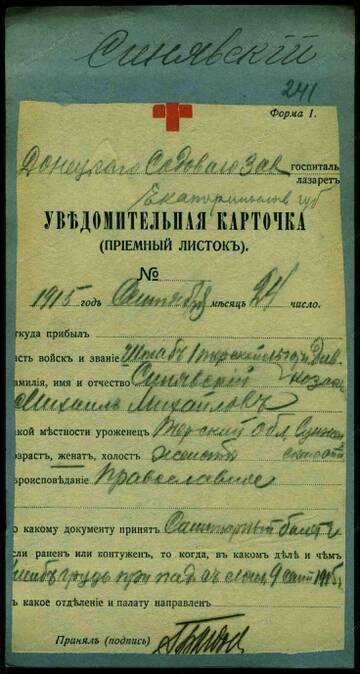 Синявскій
241
Форма 1.
Донецкаго Содоваго Зав госпиталь
лазаретъ
Екатеринослав губ
УВѢДОМИТЕЛЬНАЯ КАРТОЧКА
(ПРІЕМНЫЙ ЛИСТОКЪ).
№
1915 годъ Сентября мѣсяцъ 24 число.
ткуда прибылъ
асть войскъ и званіе Штабъ 1 Терской Див
амилія, имя и отчество Синявскій казак
Михаилъ Михайловъ
акой мѣстности уроженецъ Терской Обл
озрастъ, женатъ, холостъ женатъ
ѣроисповѣданіе Православное
о какому документу принятъ Санитарный билетъ
сли раненъ или контуженъ, то когда, въ какомъ дѣлѣ и чѣмъ
грудь при пад съ 9 сент 1915 г
ъ какое отдѣленіе и палату направленъ
Принялъ (подпись)